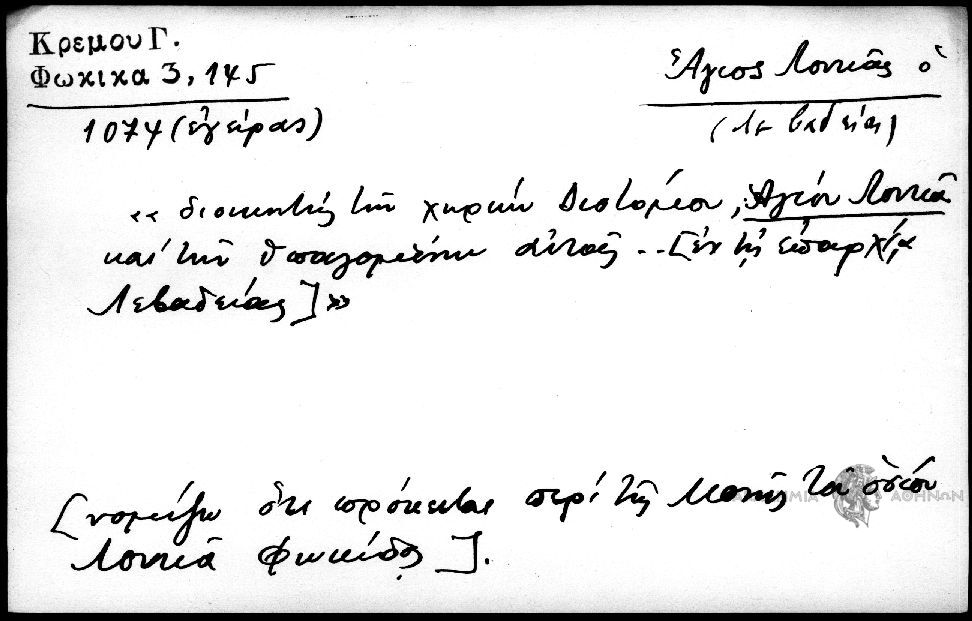 Κρεμου Γ.
Φωκικα 3, 145
1074 (ἔγγειρας)
Ἅγιος Λουκᾶς ὁ
(Λεβαδείας)
«διοικητὴς τῶν χωρίων Διστόμου, Ἁγίου Λουκᾶ
καὶ τῶν ὑπαγομένων αὐτοῖς .. [ἐν τῇ ἐπαρχίᾳ
Λεβαδείας]»
[νομίζω ὅτι πρόκειται περὶ τῆς Μονῆς τοῦ ὁσίου
Λουκᾶ Φωκίδος].
ΑΘΗΝΩΝ